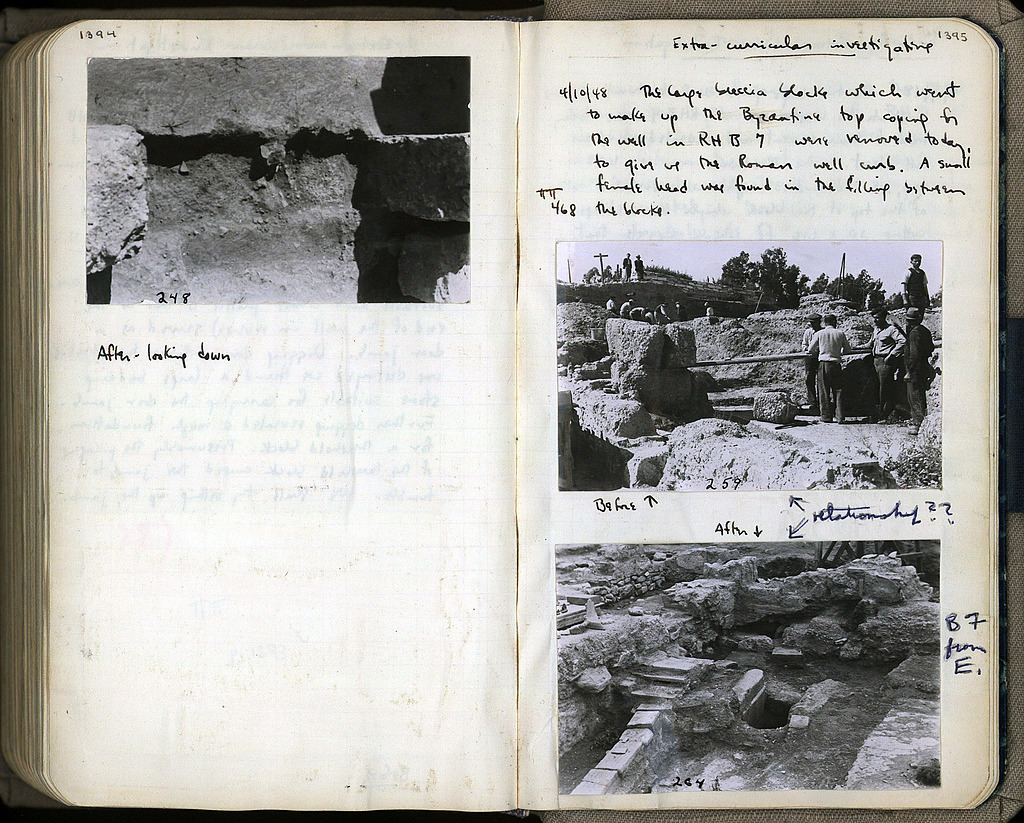 1394
248
After - looking down
1395
Extra-curricular investigating
4/10/48 The large breccia blocks which went
to make up the Byzantine top coping for
the well in RH B 7 were removed today,
to give us the Roman well curb. A small
female head was found in the filling between
468 the blocks.
259
Before ↑
relationship ??
After ↓
B 7
from
E.
264